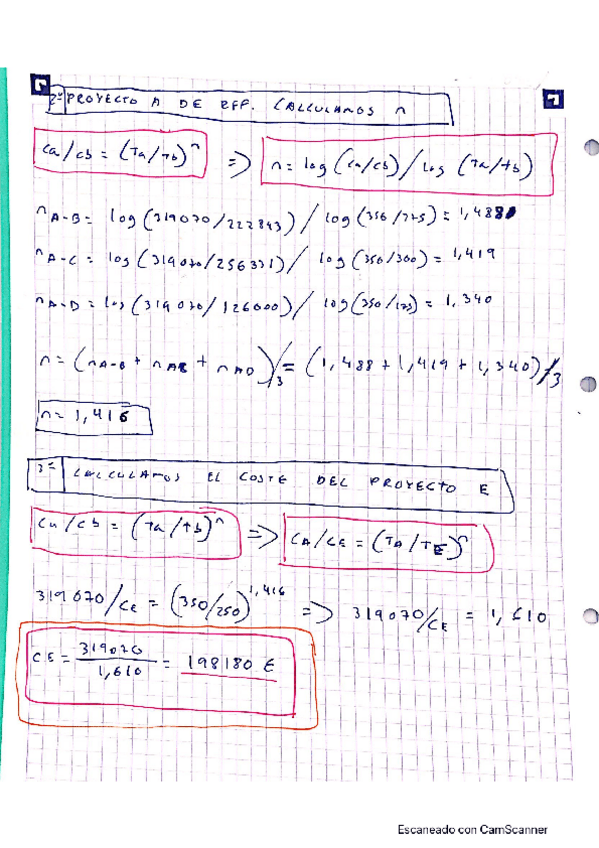 2º PROYECTO A DE REF. CALCULAMOS n
Ca/Cb = (Ta/Tb)^n => n = log (Ca/Cb) / log (Ta/Tb)
n A-B = log (319070/222843) / log (350/275) = 1,488
n A-C = log (319070/256331) / log (350/300) = 1,419
n A-D = log (319070/126000) / log (350/175) = 1,340
n = (n A-B + n AC + n AD)/3 = (1,488 + 1,419 + 1,340)/3
n = 1,416
3º CALCULAMOS EL COSTE DEL PROYECTO E
Ca/Cb = (Ta/Tb)^n => CA/CE = (TA/TE)^n
319070/CE = (350/250)^1,416 => 319070/CE = 1,610
CE = 319070/1,610 = 198180 €
Escaneado con CamScanner